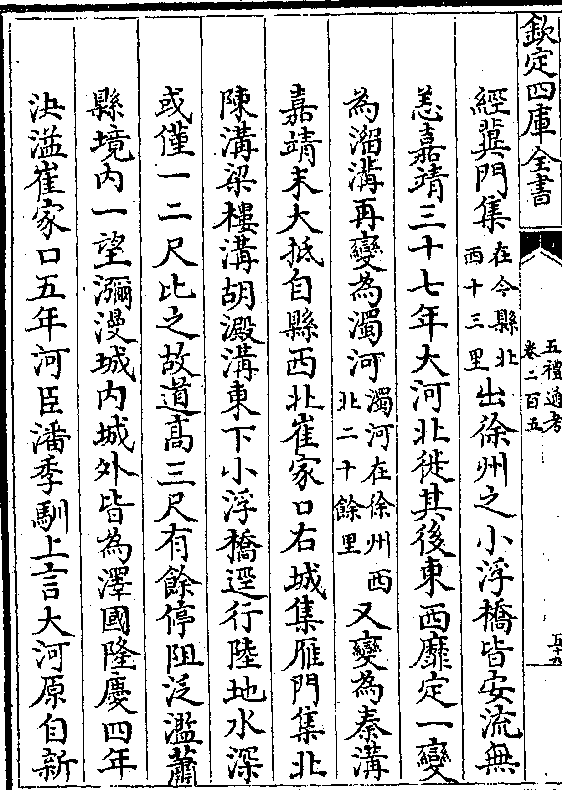 欽定四庫全書
五禮通考
卷二百五
五十九
經冀門集在今縣北西十三里出徐州之小浮橋皆安流無
恙嘉靖三十七年大河北徙其後東西靡定一變
為溜溝再變為濁河濁河在徐州西北二十餘里又變為秦溝
嘉靖末大抵自縣西北崔家口右城集雁門集北
陳溝梁樓溝胡澱溝東下小浮橋逕行陸地水深
或僅一二尺比之故道髙三尺有餘停阻泛濫蕭
縣境内一望瀰漫城内城外皆為澤國隆慶四年
決溢崔家口五年河臣潘季馴上言大河原自新